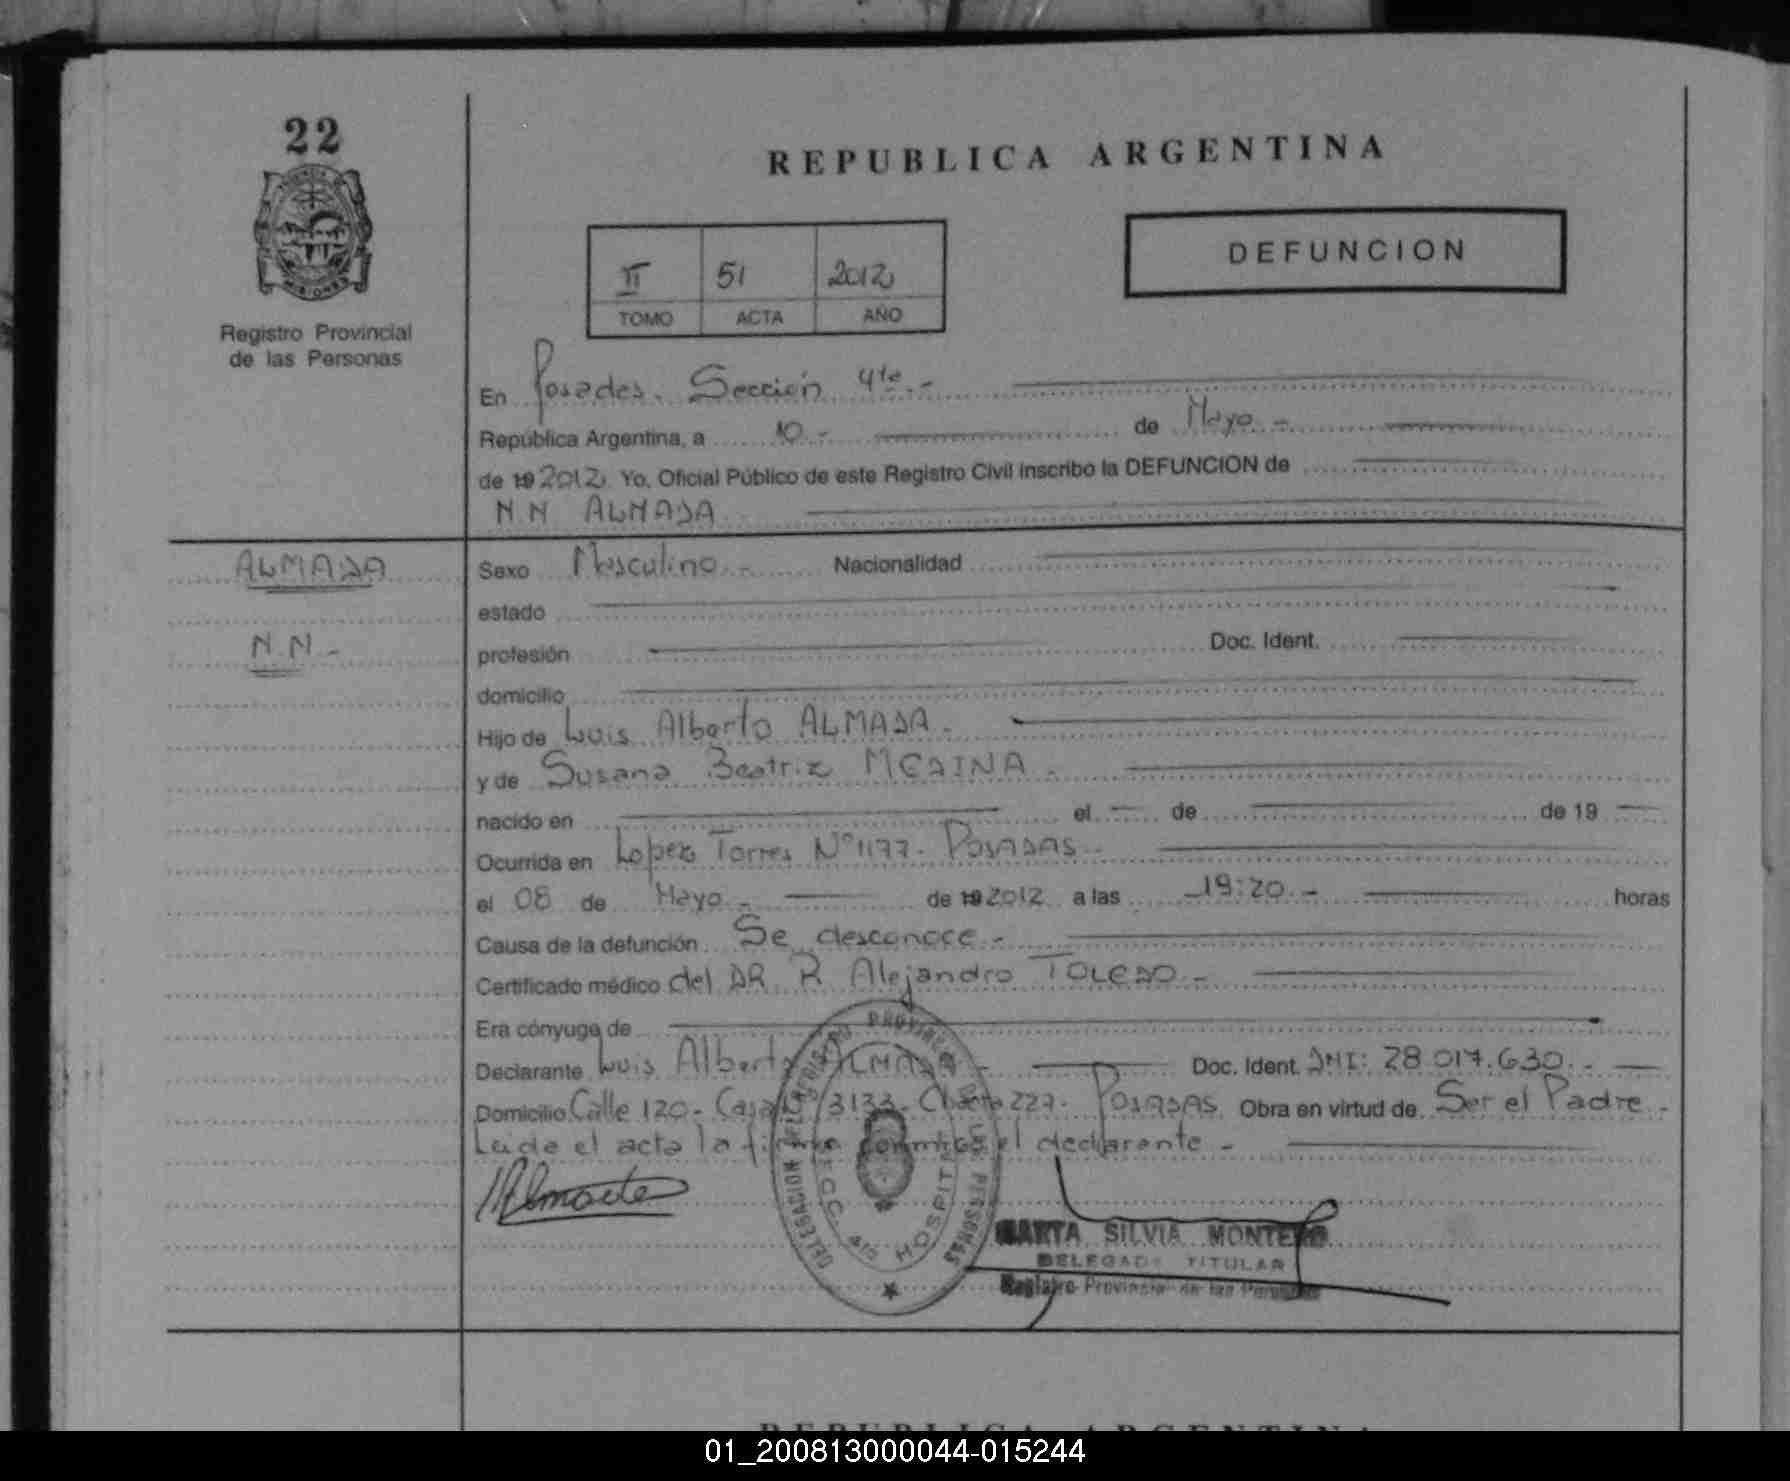 22
REPUBLICA ARGENTINA
DEFUNCION
II 51 2012
TOMO ACTA AÑO
Registro Provincial
de las Personas
En Posadas. Sección 4ta.-
República Argentina, a 10.- de Mayo.-
de 19 2012. Yo, Oficial Público de este Registro Civil inscribo la DEFUNCION de
N.N ALMADA
ALMADA
N.N.-
Sexo Masculino.- Nacionalidad
estado
profesión Doc. Ident.
domicilio
Hijo de Luis Alberto ALMADA.-
y de Susana Beatriz MEDINA.
nacido en el de de 19
Ocurrida en Lopez Torres N° 1177. POSADAS.-
el 08 de Mayo.- de 19 2012 a las 19:20.- horas
Causa de la defunción Se desconoce.-
Certificado médico del DR. R. Alejandro TOLEDO.-
Era cónyuge de
Declarante Luis Alberto ALMADA.- Doc. Ident. DNI: 28.017.630.-
Domicilio Calle 120- Casa 3133- 227. POSADAS. Obra en virtud de Ser el Padre.-
Leida el acta la firma conmigo el declarante.-
DELEGACION DEL REGISTRO PROVINCIAL DE LAS PERSONAS
SECC. 4ta HOSPITAL
MARTA SILVIA MONTERO
DELEGADA TITULAR
Registro Provincial de las Personas
REPUBLICA ARGENTINA
01_200813000044-015244